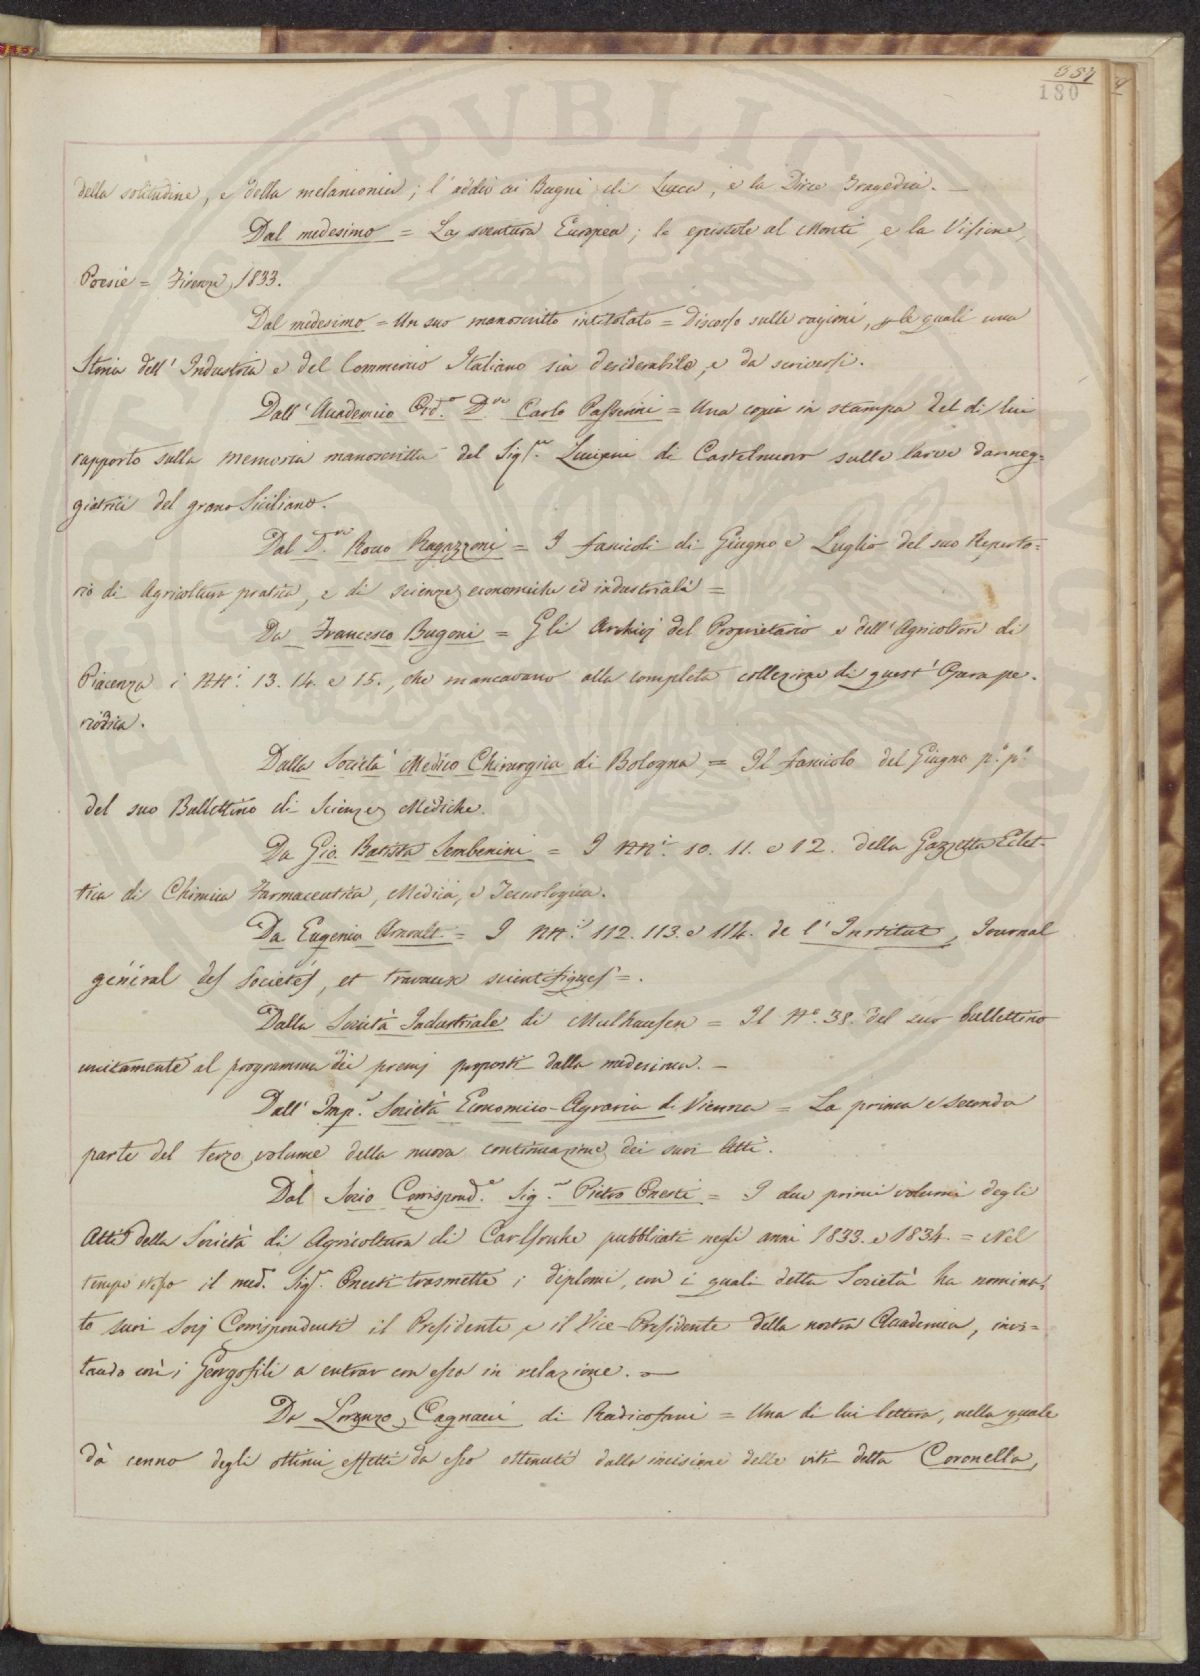 357
180
della solitudine, e della melanconia; l'addio ai Bagni di Lucca, e la Dirce Tragedia. —
Dal medesimo = La sventura Europea; le epistole al Monti, e la Visione,
Poesie = Firenze 1833.
Dal medesimo = Un suo manoscritto intitolato = Discorso sulle ragioni, p le quali una
Storia dell'Industria e del Commercio Italiano sia desiderabile, e da scriversi.
Dall'Accademico Ord.º D.re Carlo Passerini = Una copia in stampa del di lui
rapporto sulla memoria manoscritta del Sig.r di Castelnuovo sulle larve danneg=
giatrici del grano Siciliano.
Dal D.re Rocco Ragazzoni = I fascicoli di Giugno e Luglio del suo Reperto=
rio di Agricoltura pratica, e di scienze economiche ed industriali =
Da Francesco Bugoni = Gli Archivj del Proprietario e dell'Agricoltore di
Piacenza i NN.i 13. 14. e 15., che mancavano alla completa collezione di quest'Opera pe=
riodica.
Dalla Società Medico Chirurgica di Bologna, = Il fascicolo del Giugno p.º p.º
del suo Bullettino di Scienze Mediche.
Da Gio. Batista Sembenini = I NN.i 10. 11. e 12. della Gazzetta Eclet=
tica di Chimica Farmaceutica, Medica, e Tecnologica.
Da Eugenio Arnoult = I NN.i 112. 113. e 114. de l'Institut, Journal
général des Societés, et travaux scientifiques =.
Dalla Società Industriale di Mulhausen = Il N.º 38. del suo bullettino
unitamente al programma dei premj proposti dalla medesima. —
Dall'Imp.l Società Economico-Agraria di Vienna = La prima e seconda
parte del terzo volume della nuova continuazione dei suoi Atti.
Dal Socio Corrispond.e Sig.r Pietro Onesti = I due primi volumi degli
Atti della Società di Agricoltura di Carlsruhe pubblicati negli anni 1833. e 1834. = Nel
tempo stesso il med.º Sig.r Onesti trasmette i diplomi, con i quali detta Società ha nomina=
to suoi Socj Corrispondenti il Presidente, e il Vice-Presidente della nostra Accademia, invi=
tando così i Georgofili a entrar con essa in relazione. —
Da Lorenzo Cagnacci di Radicofani = Una di lui lettera, nella quale
dà cenno degli ottimi effetti da esso ottenuti dalla incisione delle viti detta Coronella,